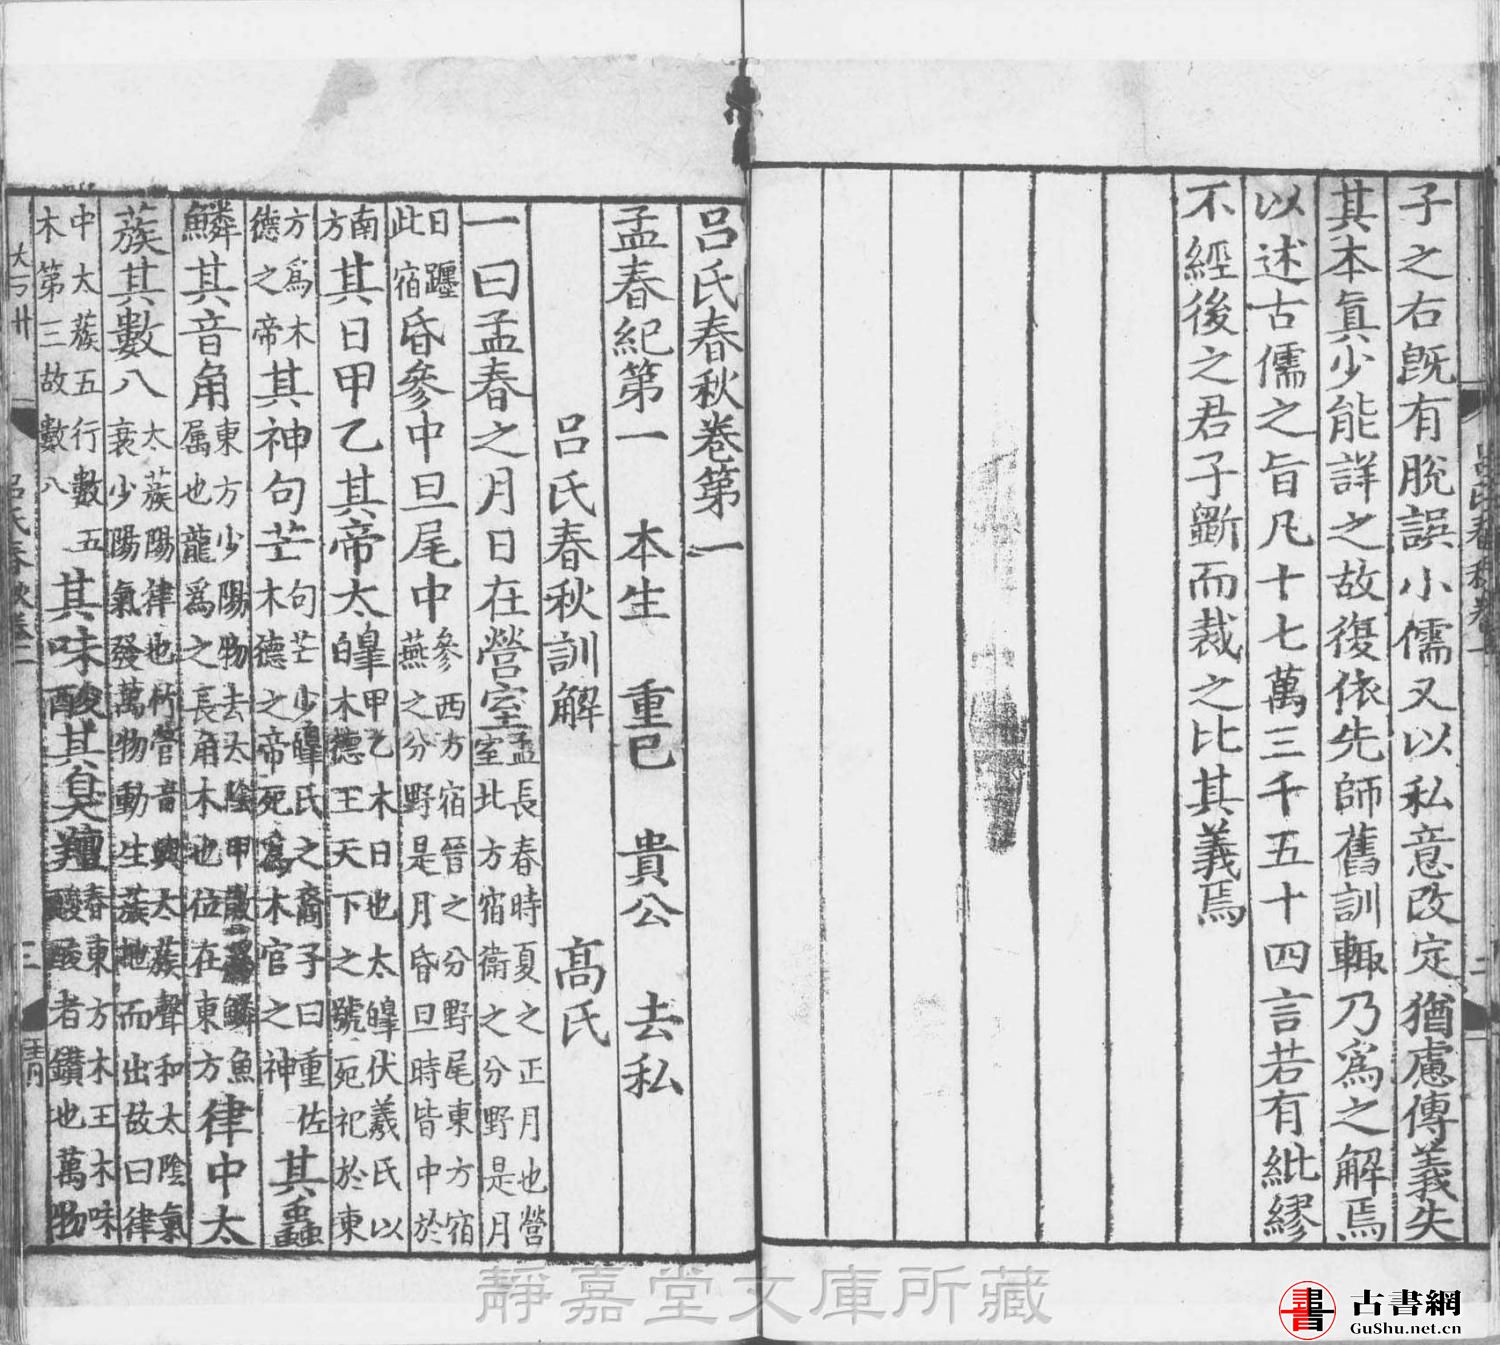 子之右旣有脫誤小儒又以私意改定猶慮傳義失
其本眞少能詳之故復依先師舊訓輒乃爲之解焉
以述古儒之旨凡十七萬三千五十四言若有紕繆
不經後之君子斷而裁之比其義焉
呂氏春秋卷第一
孟春紀第一 本生 重已 貴公 去私
呂氏春秋訓解 高氏
一曰孟春之月日在營室孟長春時夏之正月也營室北方宿衞之分野是月
日躔此宿昏參中旦尾中參西方宿晉之分野尾東方宿燕之分野是月昏旦時皆中於
南方其日甲乙其帝太皞甲乙木日也太皞伏羲氏以木德王天下之號死祀於東
方爲木德之帝其神句芒句芒少皞氏之裔子曰重佐木德之帝死爲木官之神其蟲
鱗其音角東方少陽物去太陰甲散爲鱗魚属也龍爲之長角木也位在東方律中太
蔟其數八太蔟陽律也竹管音與太蔟聲和太陰氣衰少陽氣發萬物動生蔟地而出故曰律
中太蔟五行數五木第三故數八其味酸其臭羶春東方木王木味酸酸者鑽也萬物
靜嘉堂文庫所藏
古書網
GuShu.net.cn